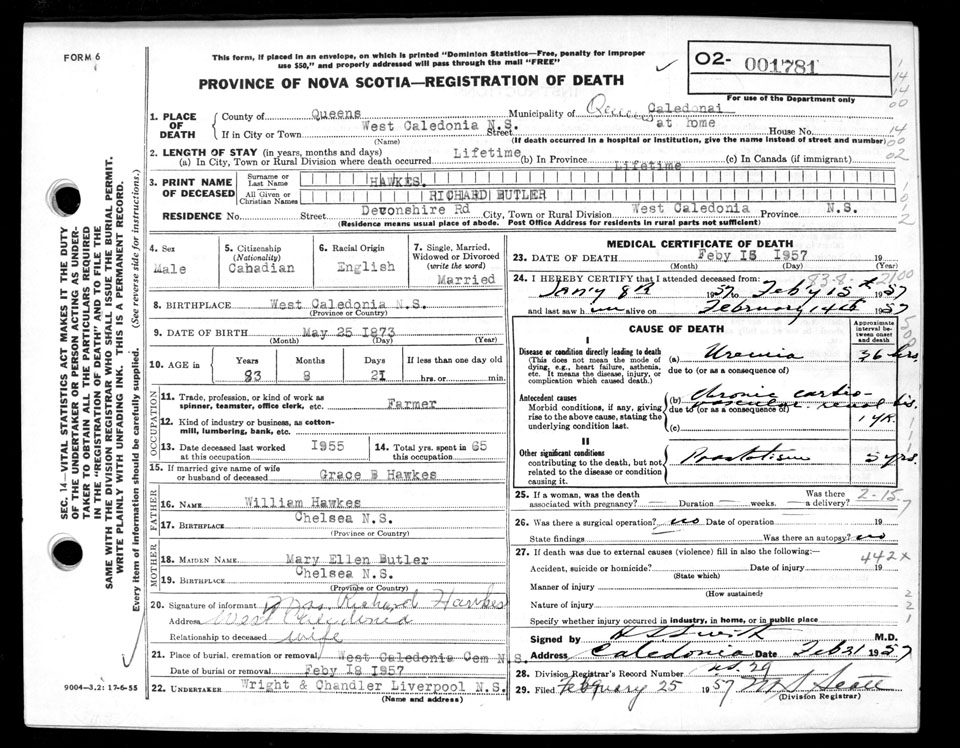 FORM 6
This form, if placed in an envelope, on which is printed "Dominion Statistics—Free, penalty for improper
use $50," and properly addressed will pass through the mail "FREE"
PROVINCE OF NOVA SCOTIA—REGISTRATION OF DEATH
02- 001781
For use of the Department only
1. PLACE OF DEATH
County of Queens Municipality of Queens Caledonai
If in City or Town West Caledonia N.S. Street at home House No.
(Name) (If death occurred in a hospital or institution, give the name instead of street and number)
2. LENGTH OF STAY (in years, months and days)
(a) In City, Town or Rural Division where death occurred Lifetime (b) In Province Lifetime (c) In Canada (if immigrant)
3. PRINT NAME OF DECEASED
Surname or Last Name HAWKES.
All Given or Christian Names RICHARD BUTLER
RESIDENCE No. Street Devonshire Rd City, Town or Rural Division West Caledonia Province N.S.
(Residence means usual place of abode. Post Office Address for residents in rural parts not sufficient)
4. Sex Male
5. Citizenship (Nationality) Cabadian
6. Racial Origin English
7. Single, Married, Widowed or Divorced (write the word) Married
8. BIRTHPLACE West Caledonia N.S.
(Province or Country)
9. DATE OF BIRTH May 25 1873
(Month) (Day) (Year)
10. AGE in Years Months Days If less than one day old
83 8 21 hrs. or min.
OCCUPATION
11. Trade, profession, or kind of work as
spinner, teamster, office clerk, etc. Farmer
12. Kind of industry or business, as cotton-
mill, lumbering, bank, etc.
13. Date deceased last worked
at this occupation 1955
14. Total yrs. spent in
this occupation 65
15. If married give name of wife
or husband of deceased Grace B Hawkes
FATHER
16. NAME William Hawkes
17. BIRTHPLACE Chelsea N.S.
(Province or Country)
MOTHER
18. MAIDEN NAME Mary Ellen Butler
19. BIRTHPLACE Chelsea N.S.
(Province or Country)
20. Signature of informant Mrs. Richard Hawkes
Address West Caledonia
Relationship to deceased wife
21. Place of burial, cremation or removal West Caledonia Cem N.S.
Date of burial or removal Feby 18 1957
22. UNDERTAKER Wright & Chandler Liverpool N.S.
(Name and address)
MEDICAL CERTIFICATE OF DEATH
23. DATE OF DEATH Feby 15 1957
(Month) (Day) (Year)
24. I HEREBY CERTIFY that I attended deceased from: 83-8-21 00
Jan'y 8th 1957 to Feb'y 15th 1957
and last saw him alive on February 14th 1957
CAUSE OF DEATH
Approximate interval between onset and death
I
Disease or condition directly leading to death
(This does not mean the mode of
dying, e.g., heart failure, asthenia,
etc. It means the disease, injury, or
complication which caused death.)
(a) Uremia 36 hrs.
due to (or as a consequence of)
Antecedent causes
Morbid conditions, if any, giving
rise to the above cause, stating the
underlying condition last.
(b) Chronic cardio-
vascular renal dis.
due to (or as a consequence of)
1 yr.
(c)
II
Other significant conditions
contributing to the death, but not
related to the disease or condition
causing it.
Prostatism 5 yrs.
25. If a woman, was the death
associated with pregnancy? Duration weeks. Was there a delivery?
2-15-7
26. Was there a surgical operation? no Date of operation 19
State findings Was there an autopsy? no
27. If death was due to external causes (violence) fill in also the following:—
442x
Accident, suicide or homicide? Date of injury 19
(State which)
Manner of injury
(How sustained)
Nature of injury
Specify whether injury occurred in industry, in home, or in public place
Signed by M.D.
Address Caledonia Date Feb 21 1957
28. Division Registrar's Record Number No. 29
29. Filed February 25 1957 M S Scott
(Division Registrar)
SEC. 14—VITAL STATISTICS ACT MAKES IT THE DUTY
OF THE UNDERTAKER OR PERSON ACTING AS UNDER-
TAKER TO OBTAIN ALL THE PARTICULARS REQUIRED
IN THE "REGISTRATION OF DEATH" AND TO FILE THE
SAME WITH THE DIVISION REGISTRAR WHO SHALL ISSUE THE BURIAL PERMIT.
WRITE PLAINLY WITH UNFADING INK. THIS IS A PERMANENT RECORD.
Every item of information should be carefully supplied. (See reverse side for instructions.)
9004—3.2: 17-6-55